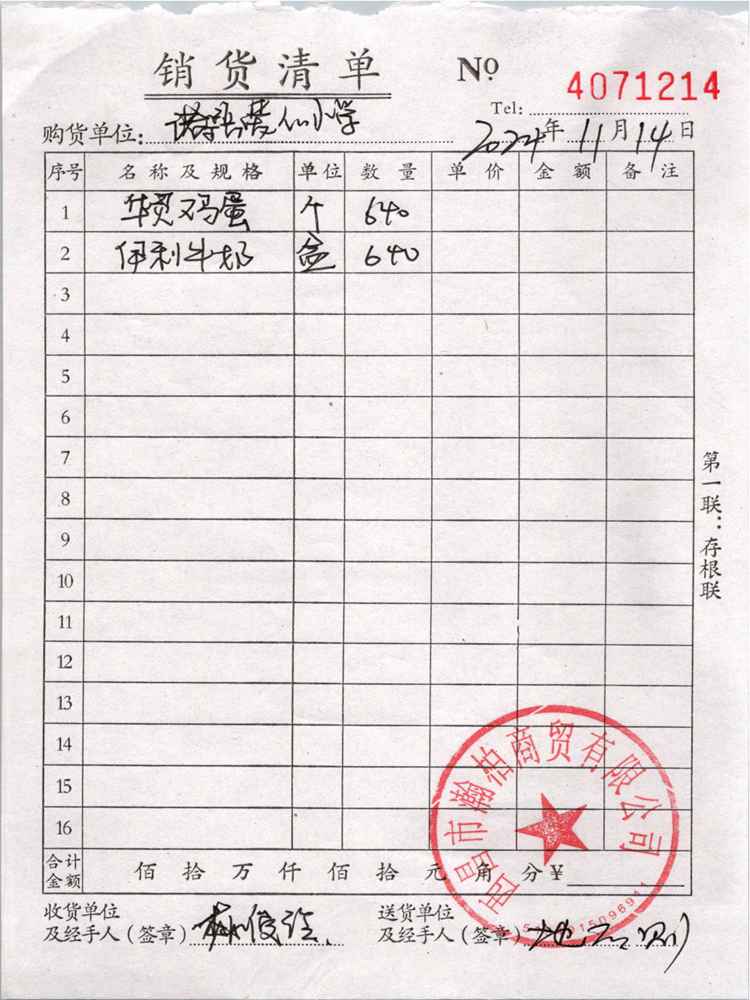 销货清单 No 4071214
Tel:
购货单位: 小学 2024年11月14日
序号 名称及规格 单位 数量 单价 金额 备注
1 华贸鸡蛋 个 640
2 伊利牛奶 盒 640
3
4
5
6
7
8
9
10
11
12
13
14
15
16
合计金额 佰拾万仟佰拾元角分¥
收货单位
及经手人(签章)
送货单位
及经手人(签章)
第一联:存根联
西昌市瀚柏商贸有限公司